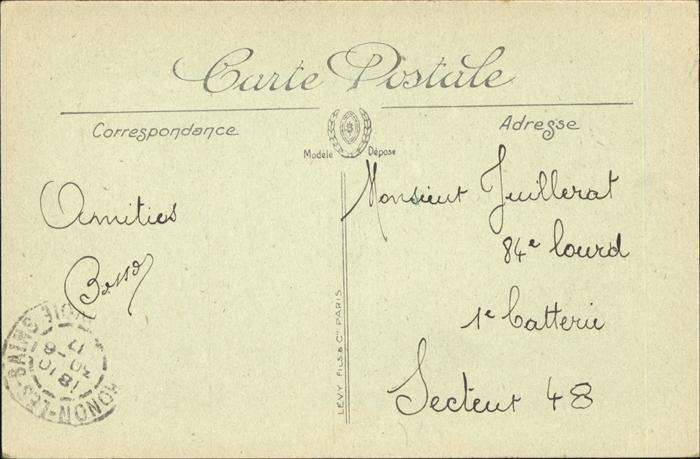 Carte Postale
Correspondance
Adresse
Modèle Déposé
Amitiés
Monsieur Juillerat
84e lourd
1e batterie
Secteur 48
LÉVY FILS & Cie PARIS
18 10
30 -6
17